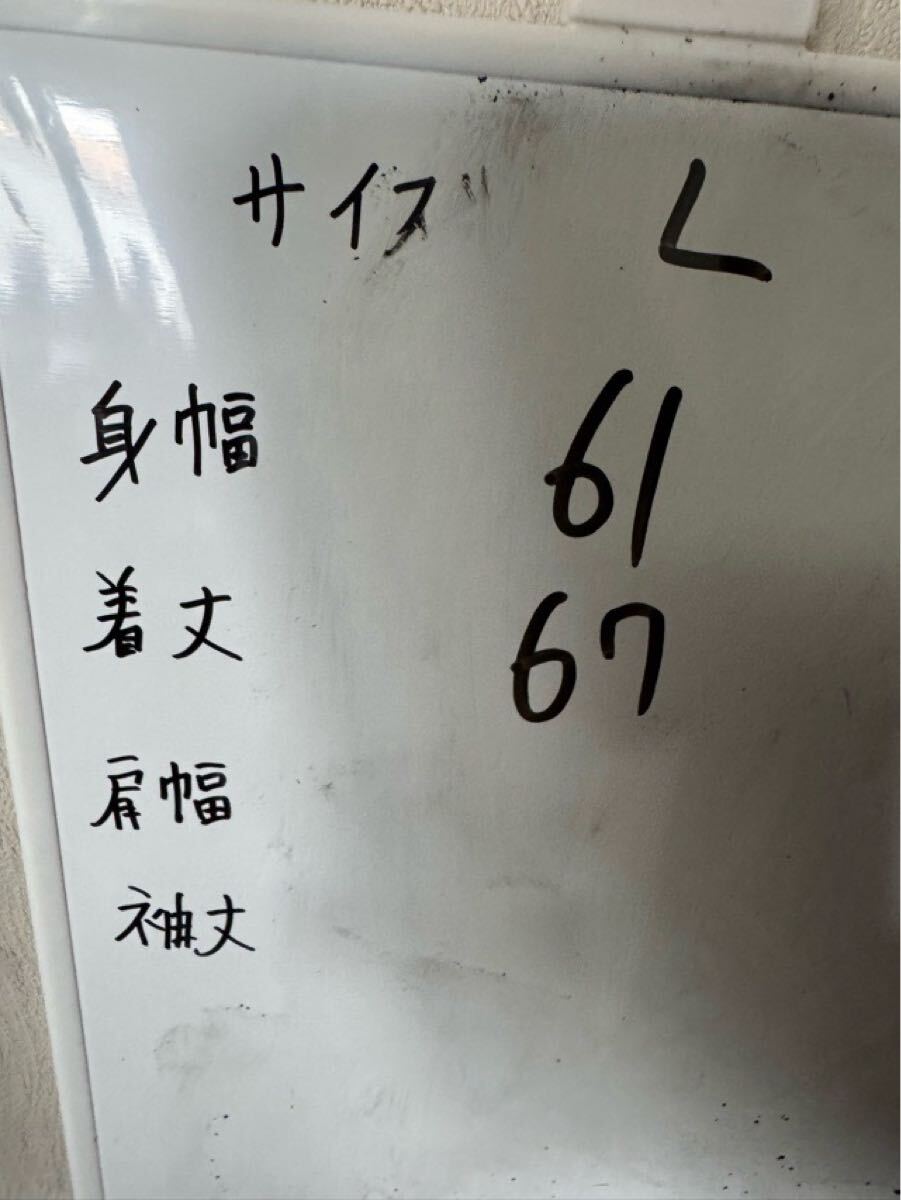 サイズ L
身幅 61
着丈 67
肩幅
袖丈